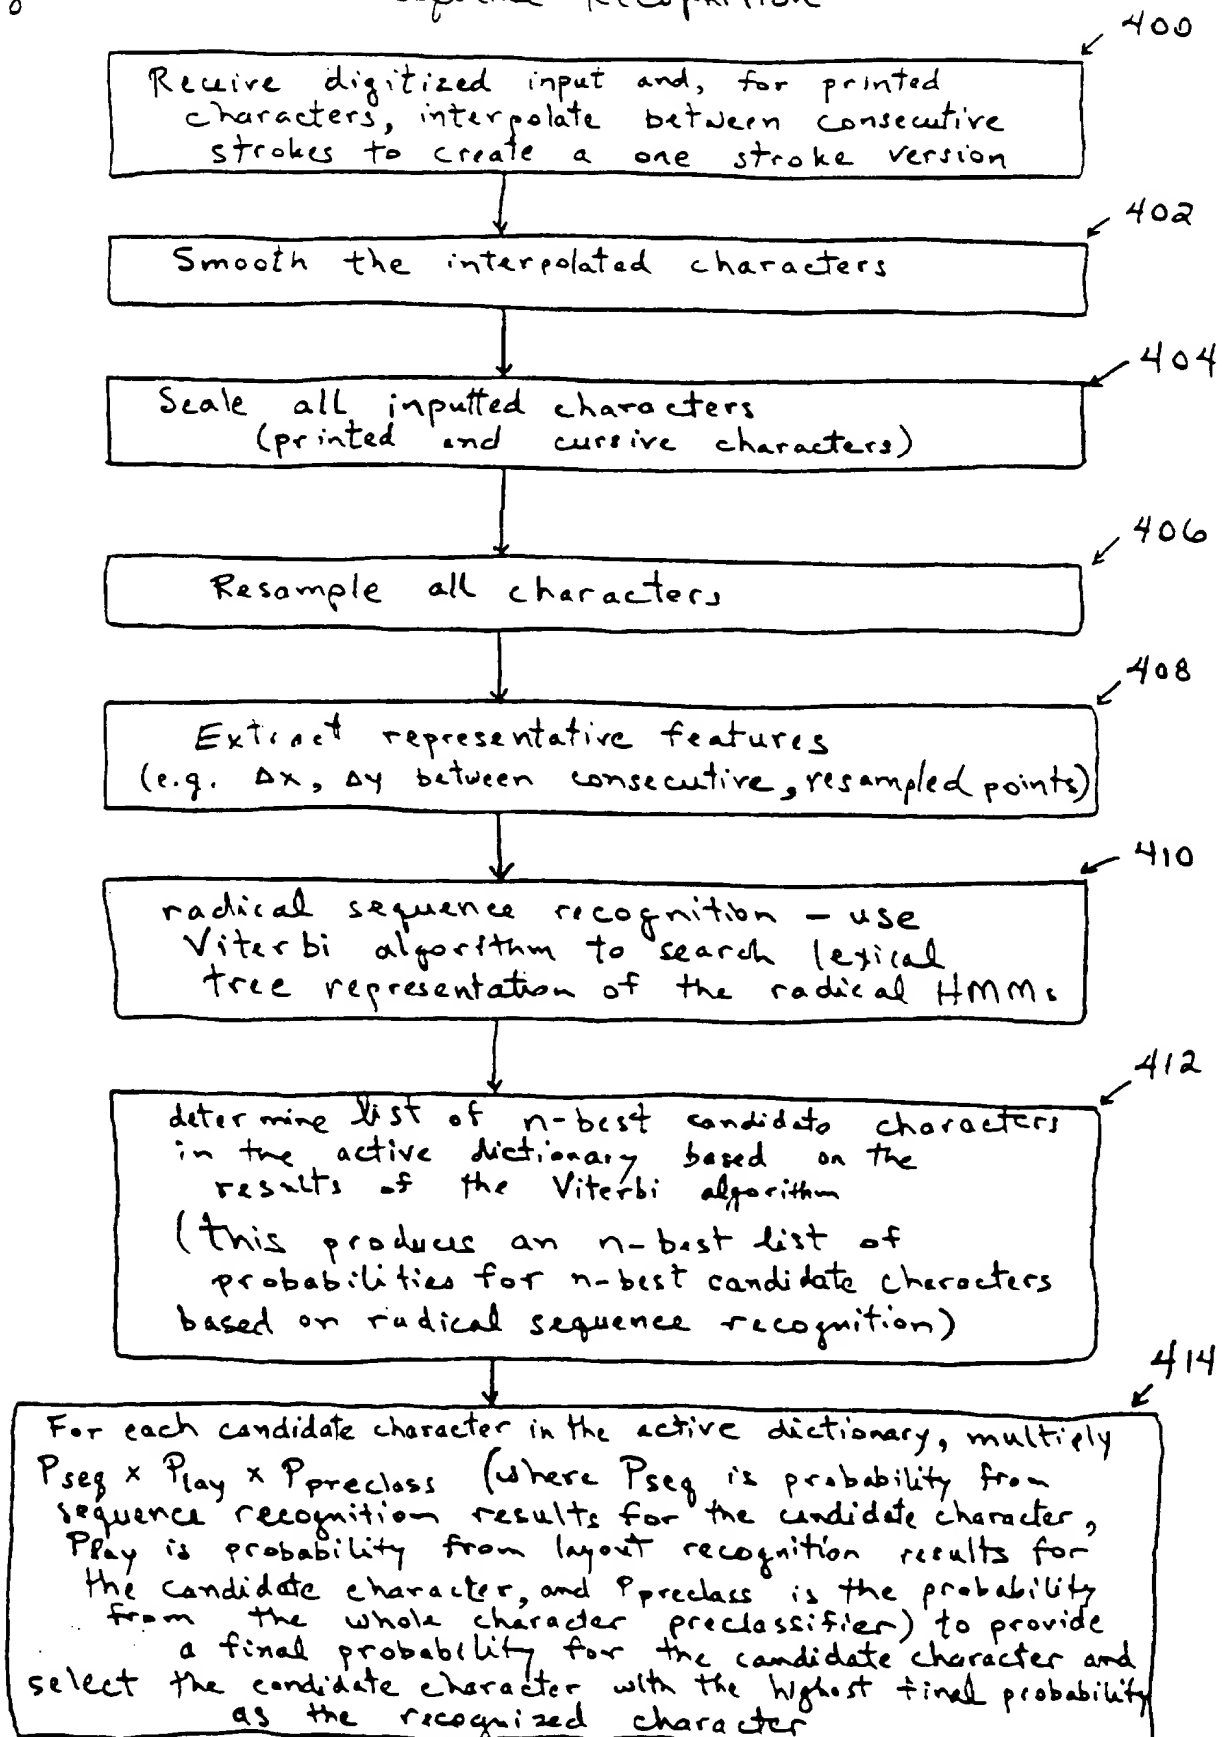 Sequence Recognition
400
Receive digitized input and, for printed
characters, interpolate between consecutive
strokes to create a one stroke version
402
Smooth the interpolated characters
404
Scale all inputted characters
(printed and cursive characters)
406
Resample all characters
408
Extract representative features
(e.g. Δx, Δy between consecutive, resampled points)
410
radical sequence recognition – use
Viterbi algorithm to search lexical
tree representation of the radical HMMs
412
determine list of n-best candidate characters
in the active dictionary based on the
results of the Viterbi algorithm
(this produces an n-best list of
probabilities for n-best candidate characters
based on radical sequence recognition)
414
For each candidate character in the active dictionary, multiply
Pseq x Play x Ppreclass (where Pseq is probability from
sequence recognition results for the candidate character,
Play is probability from layout recognition results for
the candidate character, and Ppreclass is the probability
from the whole character preclassifier) to provide
a final probability for the candidate character and
select the candidate character with the highest final probability
as the recognized character